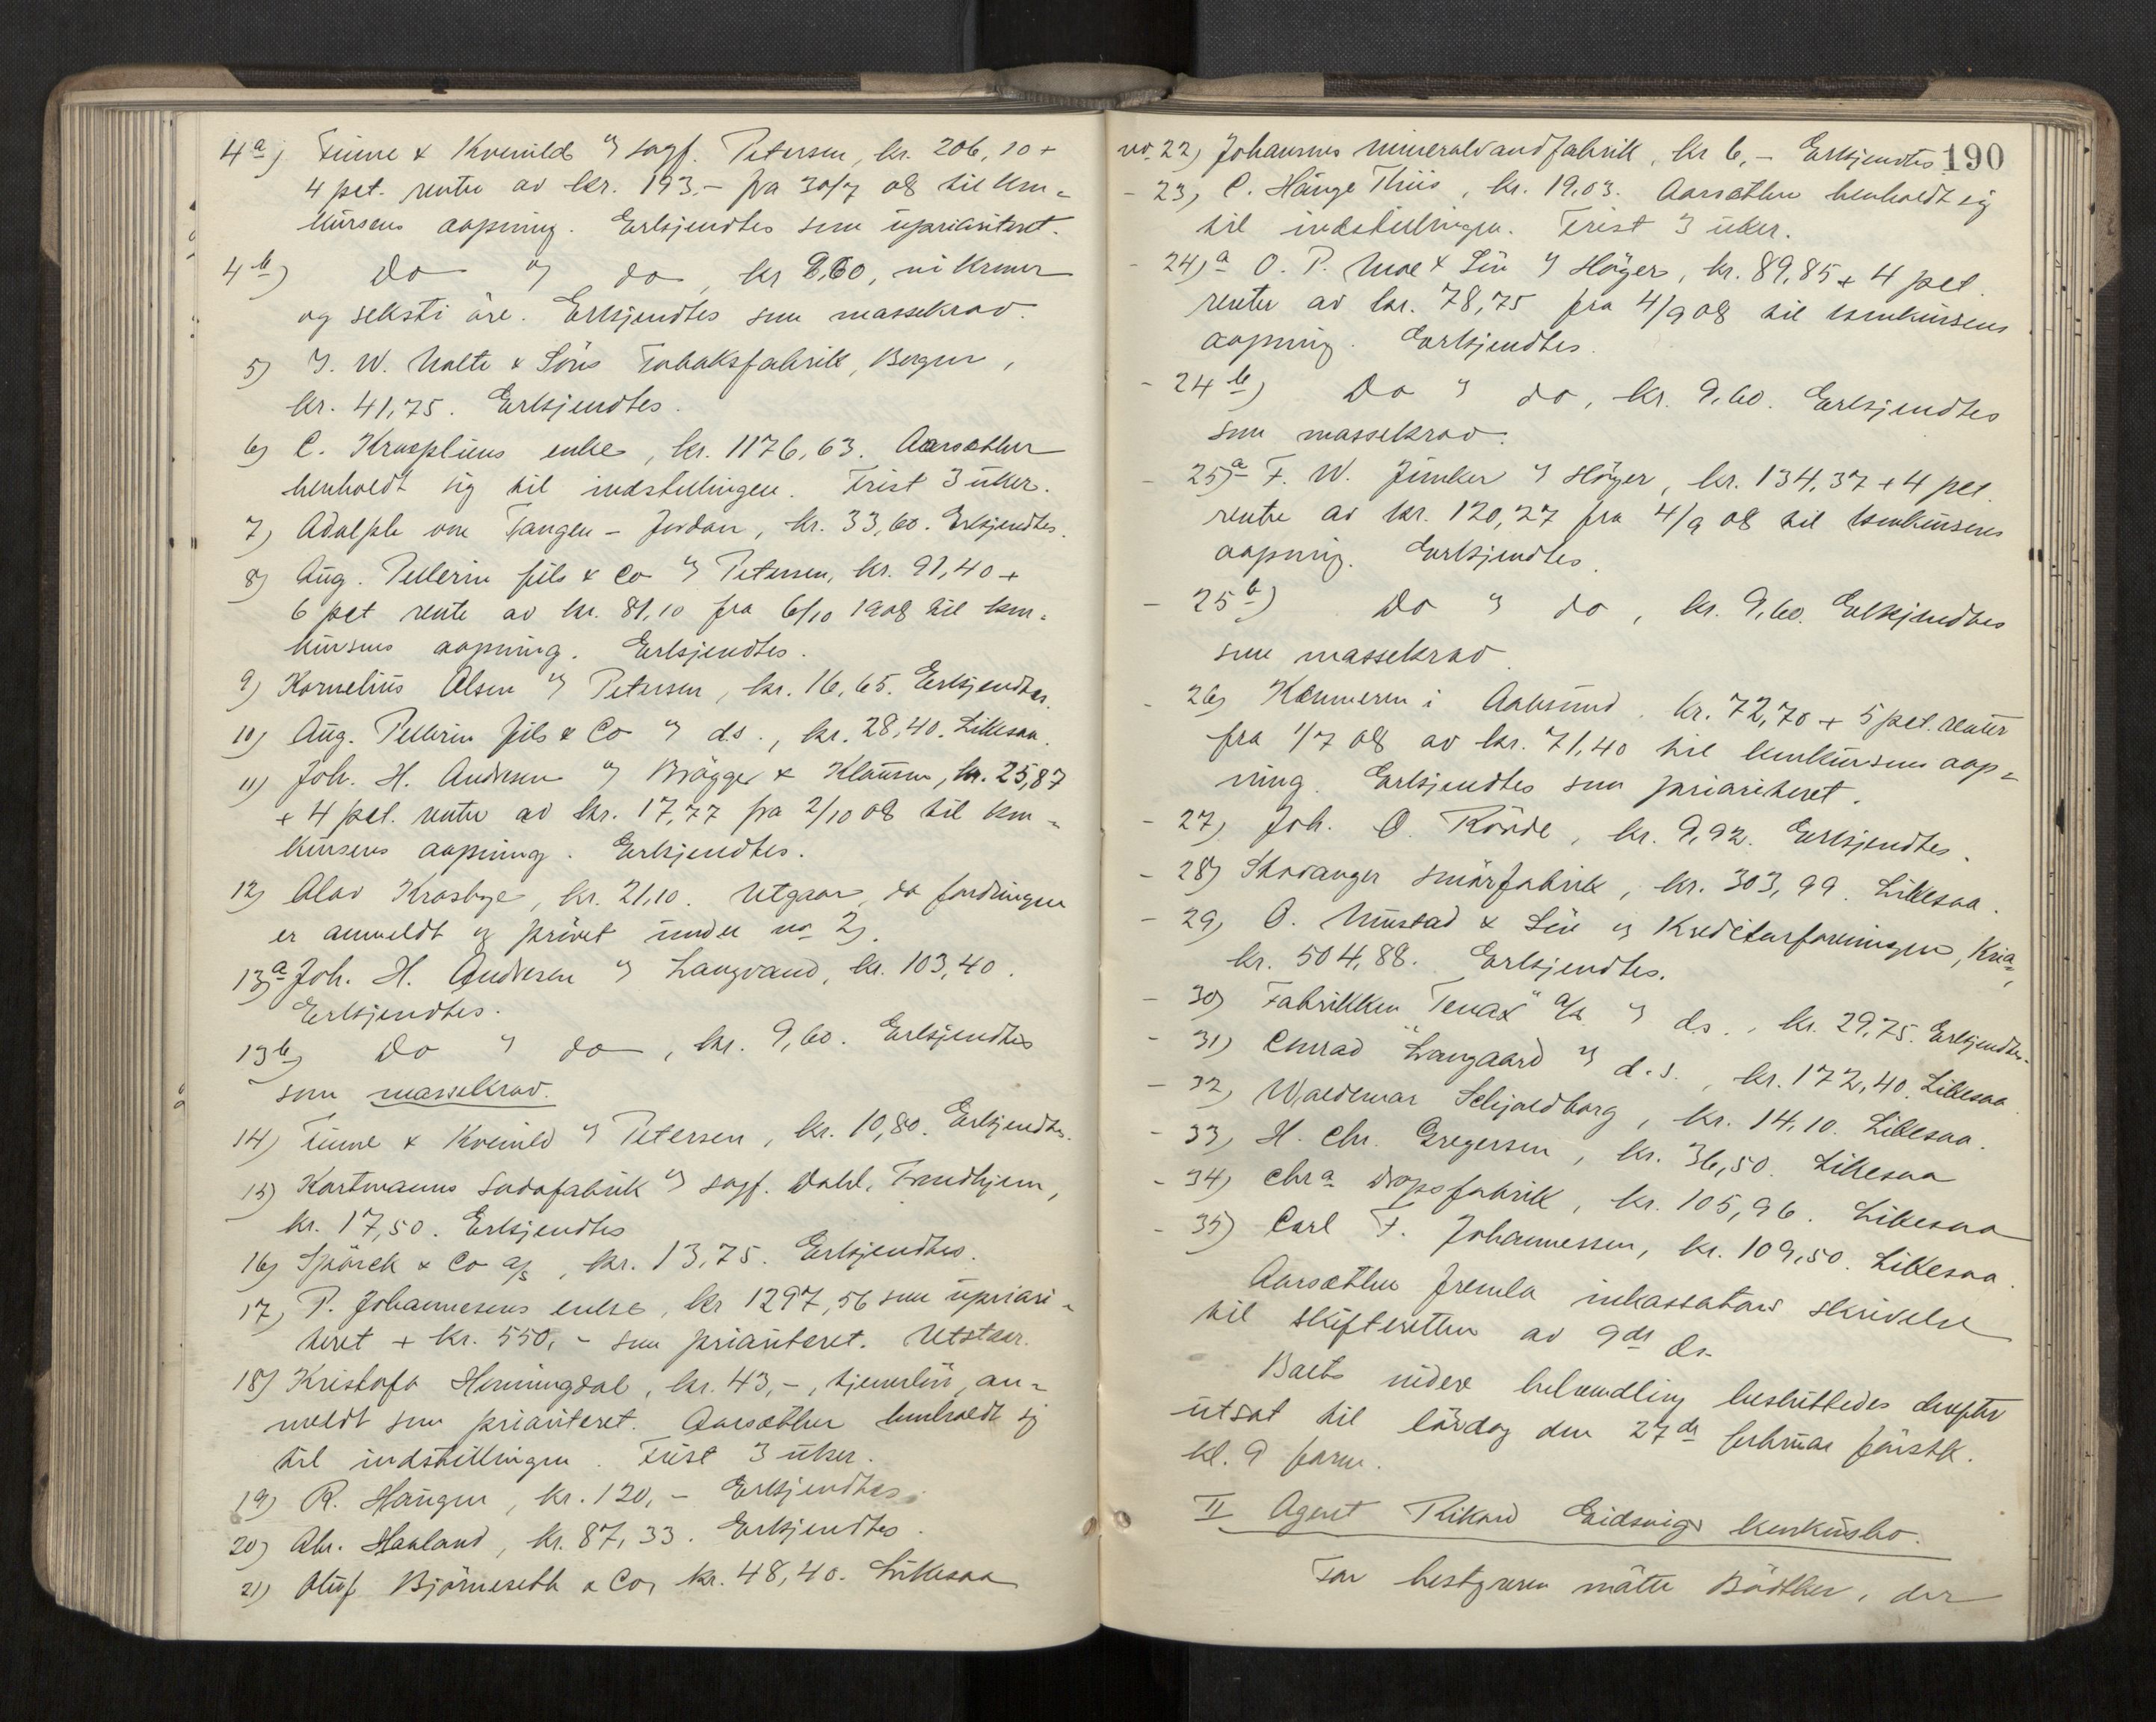 4a) Finne & Kvenild v/ sagf. Petersen, kr. 206,10 +
4 pct. renter av kr. 193.- fra 30/7 08 til kon-
kursens aapning. Erkjendtes som uprioritert.
4b) Do v/ do, kr 9,60, ni kroner
og seksti öre. Erkjendtes som massekrav.
5) J. W. Nolte & Söns Tobaksfabrik, Bergen,
kr. 41,75. Erkjendtes.
6) C. Kraepliens enke, kr. 1176,63. Aarsæther
henholdt sig til indstillingen. Frist 3 uker.
7) Adolph von Tangen - Jordan, kr. 33,60. Erkjendtes.
8) Aug. Pellerin fils & Co v/ Petersen, kr. 91,40 +
6 pct rente av kr. 81,10 fra 6/10 1908 til kon-
kursens aapning. Erkjendtes.
9) Kornelius Olsen v/ Petersen, kr. 16,65. Erkjendtes.
10) Aug. Pellerin fils & Co v/ d.s., kr. 28,40. Likesaa.
11) Joh. H. Andresen v/ Brögger & Klausen, kr. 25,87
+ 4 pct. renter av kr. 17,77 fra 2/10 08 til kon-
kursens aapning. Erkjendtes.
12) Olav Krosbye, kr. 21,10. Utgaar, da fordringen
er anmeldt og prövet under no 2).
13a) Joh. H. Andresen v/ Langvand, kr. 103,40.
Erkjendtes.
13b) Do v/ do, kr. 9,60. Erkjendtes
som massekrav.
14) Finne & Kvenild v/ Petersen, kr. 10,80. Erkjendtes.
15) Kortmanns Sodafabrik v/ sagf. Dahl, Trondhjem,
kr. 17,50. Erkjendtes
16) Spörck & Co a/s, kr. 13,75. Erkjendtes.
17) P. Johannesens enke, kr 1297,56 som upriori-
teret + kr. 550,- som prioriteret. Utstaar.
18) Kristofa Henningdal, kr. 43,-, tjenerlön, an-
meldt som prioriteret. Aarsæther henholdt sig
til indstillingen. Frist 3 uker.
19) R. Haugen, kr. 120,- Erkjendtes.
20) Abr. Haaland, kr. 87,33. Erkjendtes.
21) Oluf Björnseth & Co, kr. 48,40. Likesaa
no. 22) Johansens mineralvandfabrik, kr 6,- Erkjendtes 190
- 23) C. Hauge Thiis, kr. 19,03. Aarsæther henholdt sig
til indstillingen. Frist 3 uker.
- 24)a O. P. Moe & Sön v/ Höyer, kr. 89,85 + 4 pct.
renter av kr. 78,75 fra 4/9 08 til konkursens
aapning. Erkjendtes.
- 24b) Do v/ do, kr. 9,60. Erkjendtes
som massekrav.
- 25)a F. W. Junker v/ Höyer, kr. 134,37 + 4 pct.
rentre av kr. 120,27 fra 4/9 08 til konkursens
aapning. Erkjendtes.
- 25b) Do v/ do, kr. 9,60. Erkjendtes
som massekrav.
- 26) Kæmneren i Aalesund, kr. 72,70 + 5 pct. renter
fra 1/7 08 av kr. 71,40 til konkursens aap-
ning. Erkjendtes som prioriteret.
- 27) Joh. O. Rörde, kr. 9,92. Erkjendtes.
- 28) Stavanger smörfabrik, kr. 303,99. Likesaa.
- 29) O. Mustad & Sön v/ Kreditorforeningen, Kria,
kr. 504,88. Erkjendtes.
- 30) Fabrikken "Tenax" a/s v/ d.s., kr. 29,75. Erkjendtes.
- 31) Conrad Langaard v/ d.s., kr. 172,40. Likesaa
- 32) Waldemar Schjoldborg, kr. 14,10. Likesaa.
- 33) H. Chr. Gregersen, kr. 36,50. Likesaa
- 34) Chra dropsfabrik, kr. 105,96. Likesaa
- 35) Carl F. Johannessen, kr. 109,50. Likesaa.
Aarsæther fremla inkassators skrivelse
til skifteretten av 9de ds.
Boets videre behandling besluttedes derefter
utsat til lördag den 27de februar förstk.
kl. 9 form.
II Agent Rikard Eidsvigs konkursbo.
For bestyreren mötte Bödtker, der